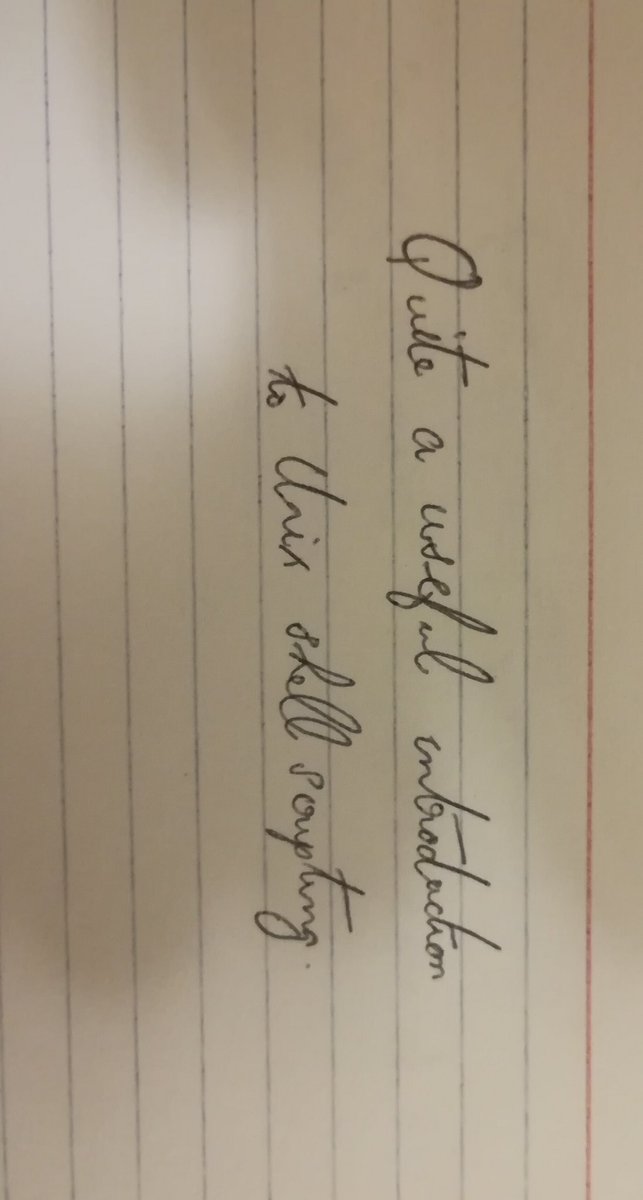 Quite a useful introduction
to Unix shell scripting.